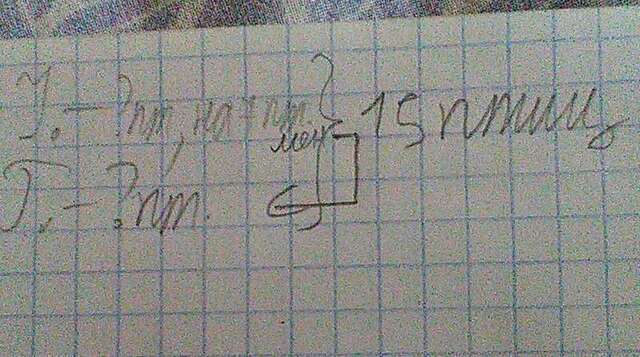 У. – ? пт, на 7 пт. } 15 птиц
мен
Г. – ? пт.